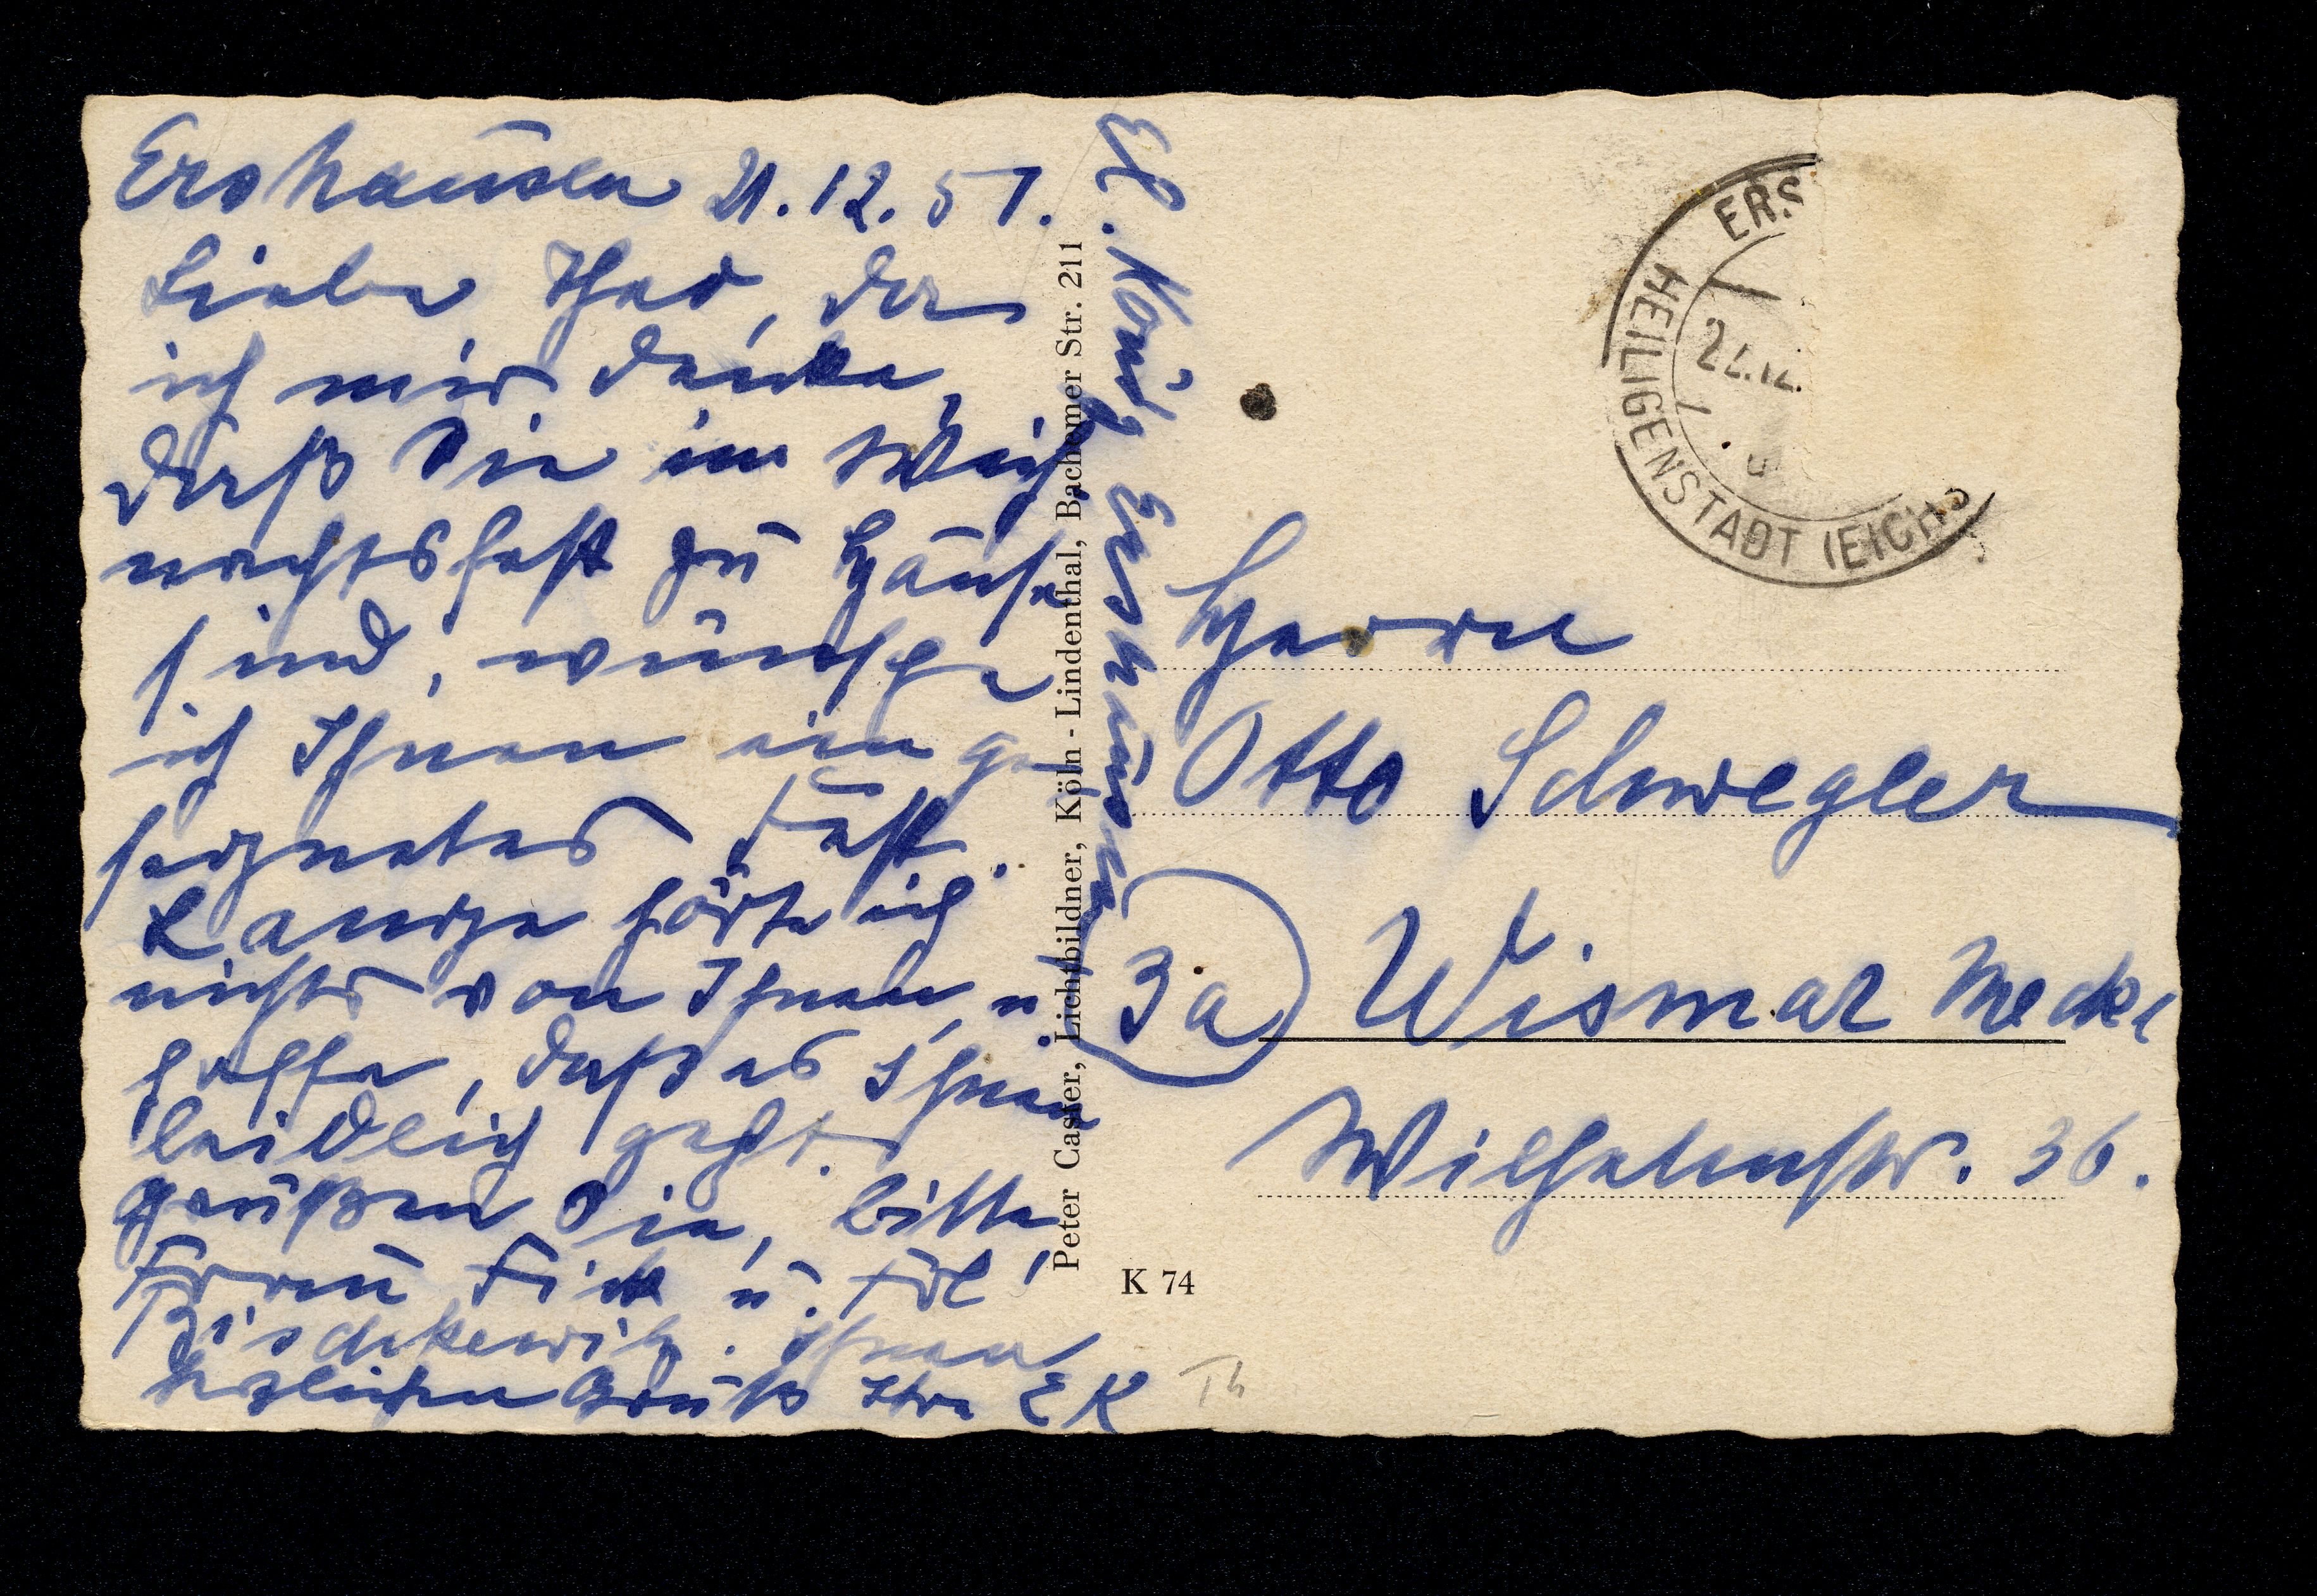 Ershausen 21.12.51.
Liebe Thea, da
ich mir denke,
daß Sie im Weih
nachtsfest zu Hause
sind, wünsche
ich Ihnen ein ge
segnetes Fest.
Lange hörte ich
nichts von Ihnen, u.
hoffe, daß es Ihnen
leidlich geht.
Grüßen Sie, bitte,
Frau Fick u. Frl.
Ihnen
herzlichen Gruß Ihre EK
El. König Ershausen
Peter Caster, Lichtbildner, Köln - Lindenthal, Bachemer Str. 211
K 74
ERS
HEILIGENSTADT (EICHS
Herrn
Otto Schwegler
3a Wismar Meckl
Wilhelmstr. 36.
Th